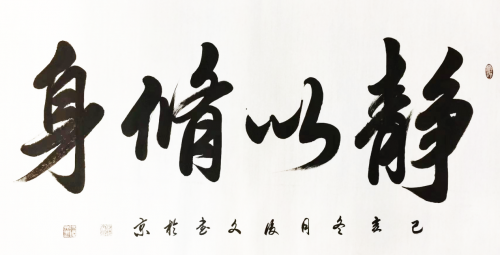 静以脩身
己亥冬月文书於京